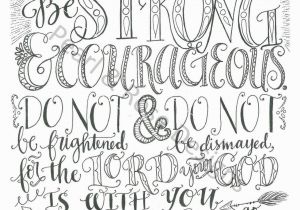 Be
STRONG
& COURAGEOUS.
DO NOT & DO NOT
be frightened be dismayed,
for the LORD your GOD
IS WITH YOU
go